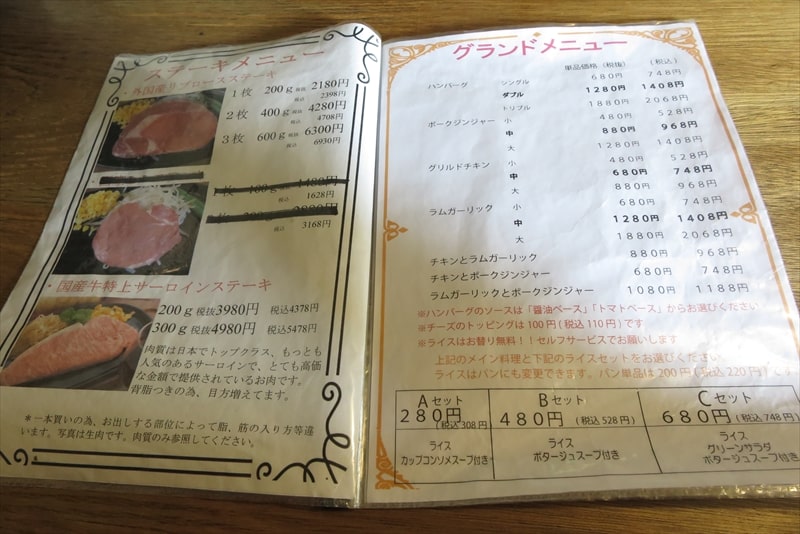 ステーキメニュー
・外国産リブロースステーキ
1枚 200g 税抜 2180円
税込 2398円
2枚 400g 税抜 4280円
税込 4708円
3枚 600g 税抜 6300円
税込 6930円
1628円
3168円
・国産牛特上サーロインステーキ
200g 税抜3980円 税込4378円
300g 税抜4980円 税込5478円
肉質は日本でトップクラス、もっとも
人気のあるサーロインで、とても高価
な金額で提供されているお肉です。
背脂つきの為、目方増えてます。
*一本買いの為、お出しする部位によって脂、筋の入り方等違
います。写真は生肉です。肉質のみ参照してください。
グランドメニュー
単品価格(税抜) (税込)
ハンバーグ シングル 680円 748円
ダブル 1280円 1408円
トリプル 1880円 2068円
ポークジンジャー 小 480円 528円
中 880円 968円
大 1280円 1408円
グリルドチキン 小 480円 528円
中 680円 748円
大 880円 968円
ラムガーリック 小 680円 748円
中 1280円 1408円
大 1880円 2068円
チキンとラムガーリック 880円 968円
チキンとポークジンジャー 680円 748円
ラムガーリックとポークジンジャー 1080円 1188円
※ハンバーグのソースは「醤油ベース」「トマトベース」からお選びください
※チーズのトッピングは100円(税込110円)です
※ライスはお替り無料!!セルフサービスでお願いします
上記のメイン料理と下記のライスセットをお選びください
ライスはパンにも変更できます。パン単品は200円(税込220円)です。
Aセット
280円(税込308円)
ライス
カップコンソメスープ付き
Bセット
480円(税込528円)
ライス
ポタージュスープ付き
Cセット
680円(税込748円)
ライス
グリーンサラダ
ポタージュスープ付き